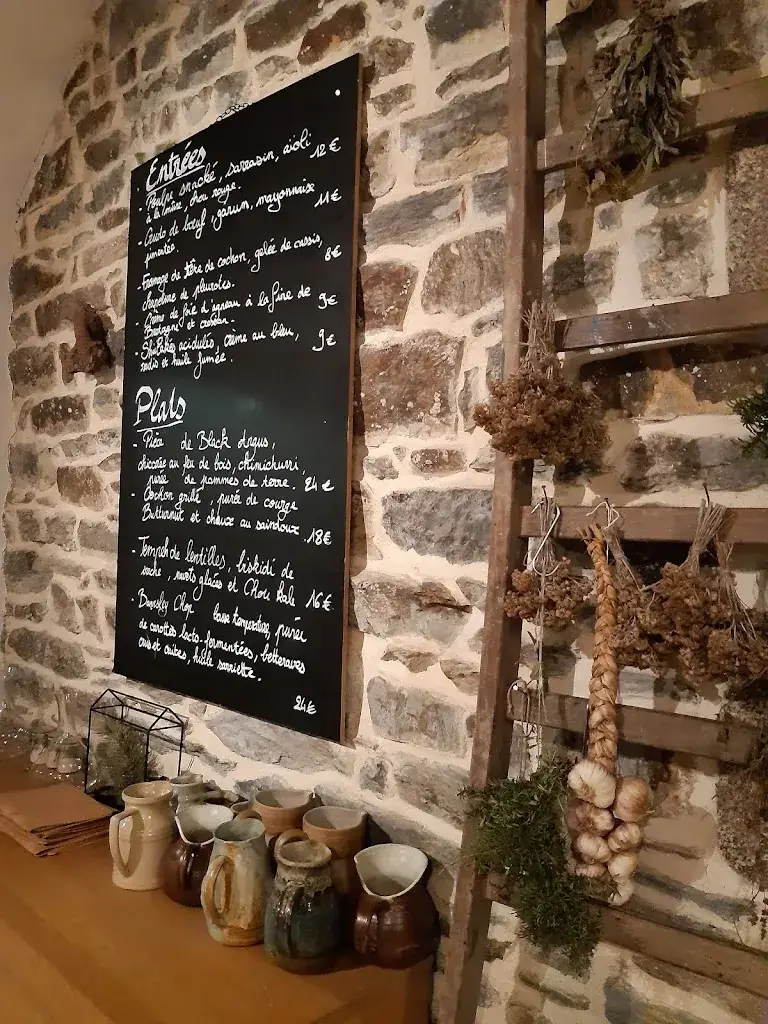 Entrées
- Poulpe snacké, sarrasin, aïoli
à la mûre, chou rouge. 12€
- Crudo de bœuf, garum, mayonnaise
pimentée. 11€
- Fromage de tête de cochon, gelée de cassis,
chapelure de pleurotes. 8€
- Crème de foie d'agneau à la fine de
Bretagne et cresson. 9€
- Shiitakés acidulés, crème au bleu,
radis et huile fumée. 9€
Plats
- Pièce de Black Angus,
chicorée au feu de bois, chimichurri,
purée de pommes de terre. 24€
- Cochon grillé, purée de courge
Butternut et choux au saindoux. 18€
- Tempeh de lentilles,
navets glacés et Chou kale 16€
- Barnsley Chop basse température, purée
de carottes lacto-fermentées, betteraves
cuis et cuites, huile sarriette.
24€